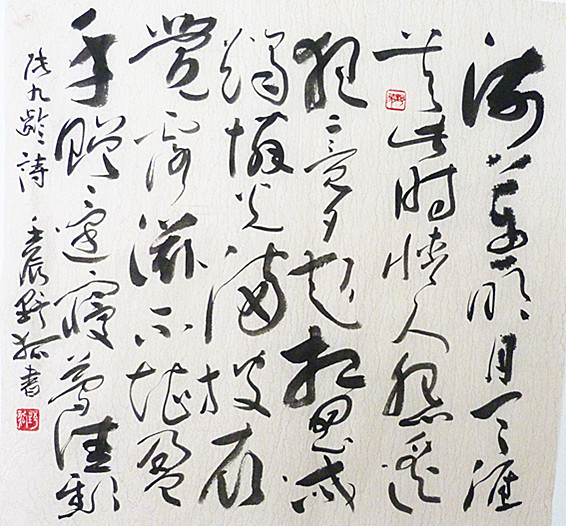 海上生明月天涯
共此时情人怨遥
夜竟夕起相思滅
燭憐光滿披衣
覺露滋不堪盈
手贈還寢夢佳期
張九齡詩 壬辰野狐書